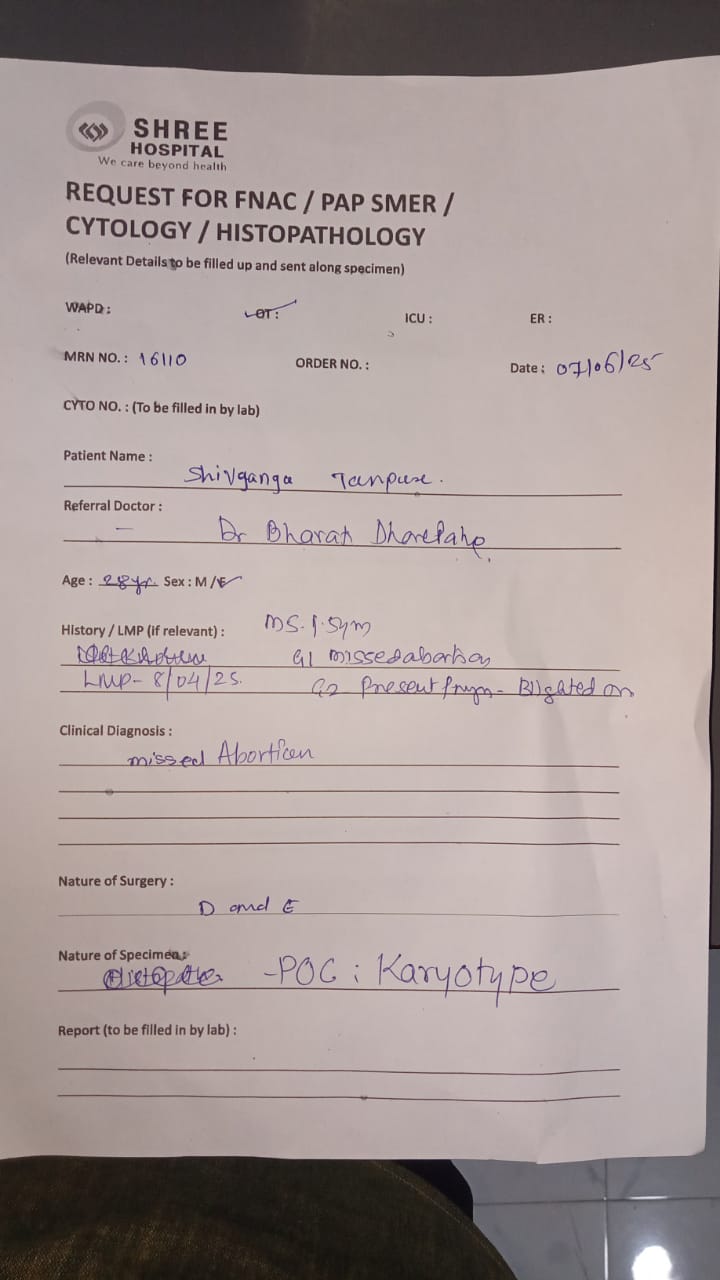 SHREE
HOSPITAL
We care beyond health
REQUEST FOR FNAC / PAP SMER /
CYTOLOGY / HISTOPATHOLOGY
(Relevant Details to be filled up and sent along specimen)
WAPD : OT : ICU : ER :
MRN NO. : 16110 ORDER NO. : Date : 07/06/25
CYTO NO. : (To be filled in by lab)
Patient Name :
Shivganga Tanpure.
Referral Doctor :
– Dr Bharat
Age : 28yr. Sex : M / F
History / LMP (if relevant) : MS. 1.5ym
G1 missed abortion
LMP- 8/04/25. G2 Present - Blighted
Clinical Diagnosis :
missed Abortion
Nature of Surgery :
D and E
Nature of Specimen :
-POC : Karyotype
Report (to be filled in by lab) :